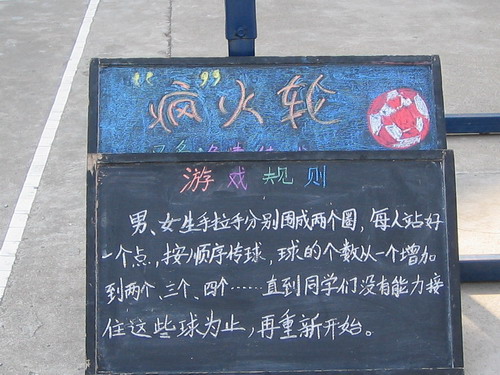 “疯”火轮
游戏规则
男、女生手拉手分别围成两个圈，每人站好
一个点，按顺序传球，球的个数从一个增加
到两个、三个、四个……直到同学们没有能力接
住这些球为止，再重新开始。